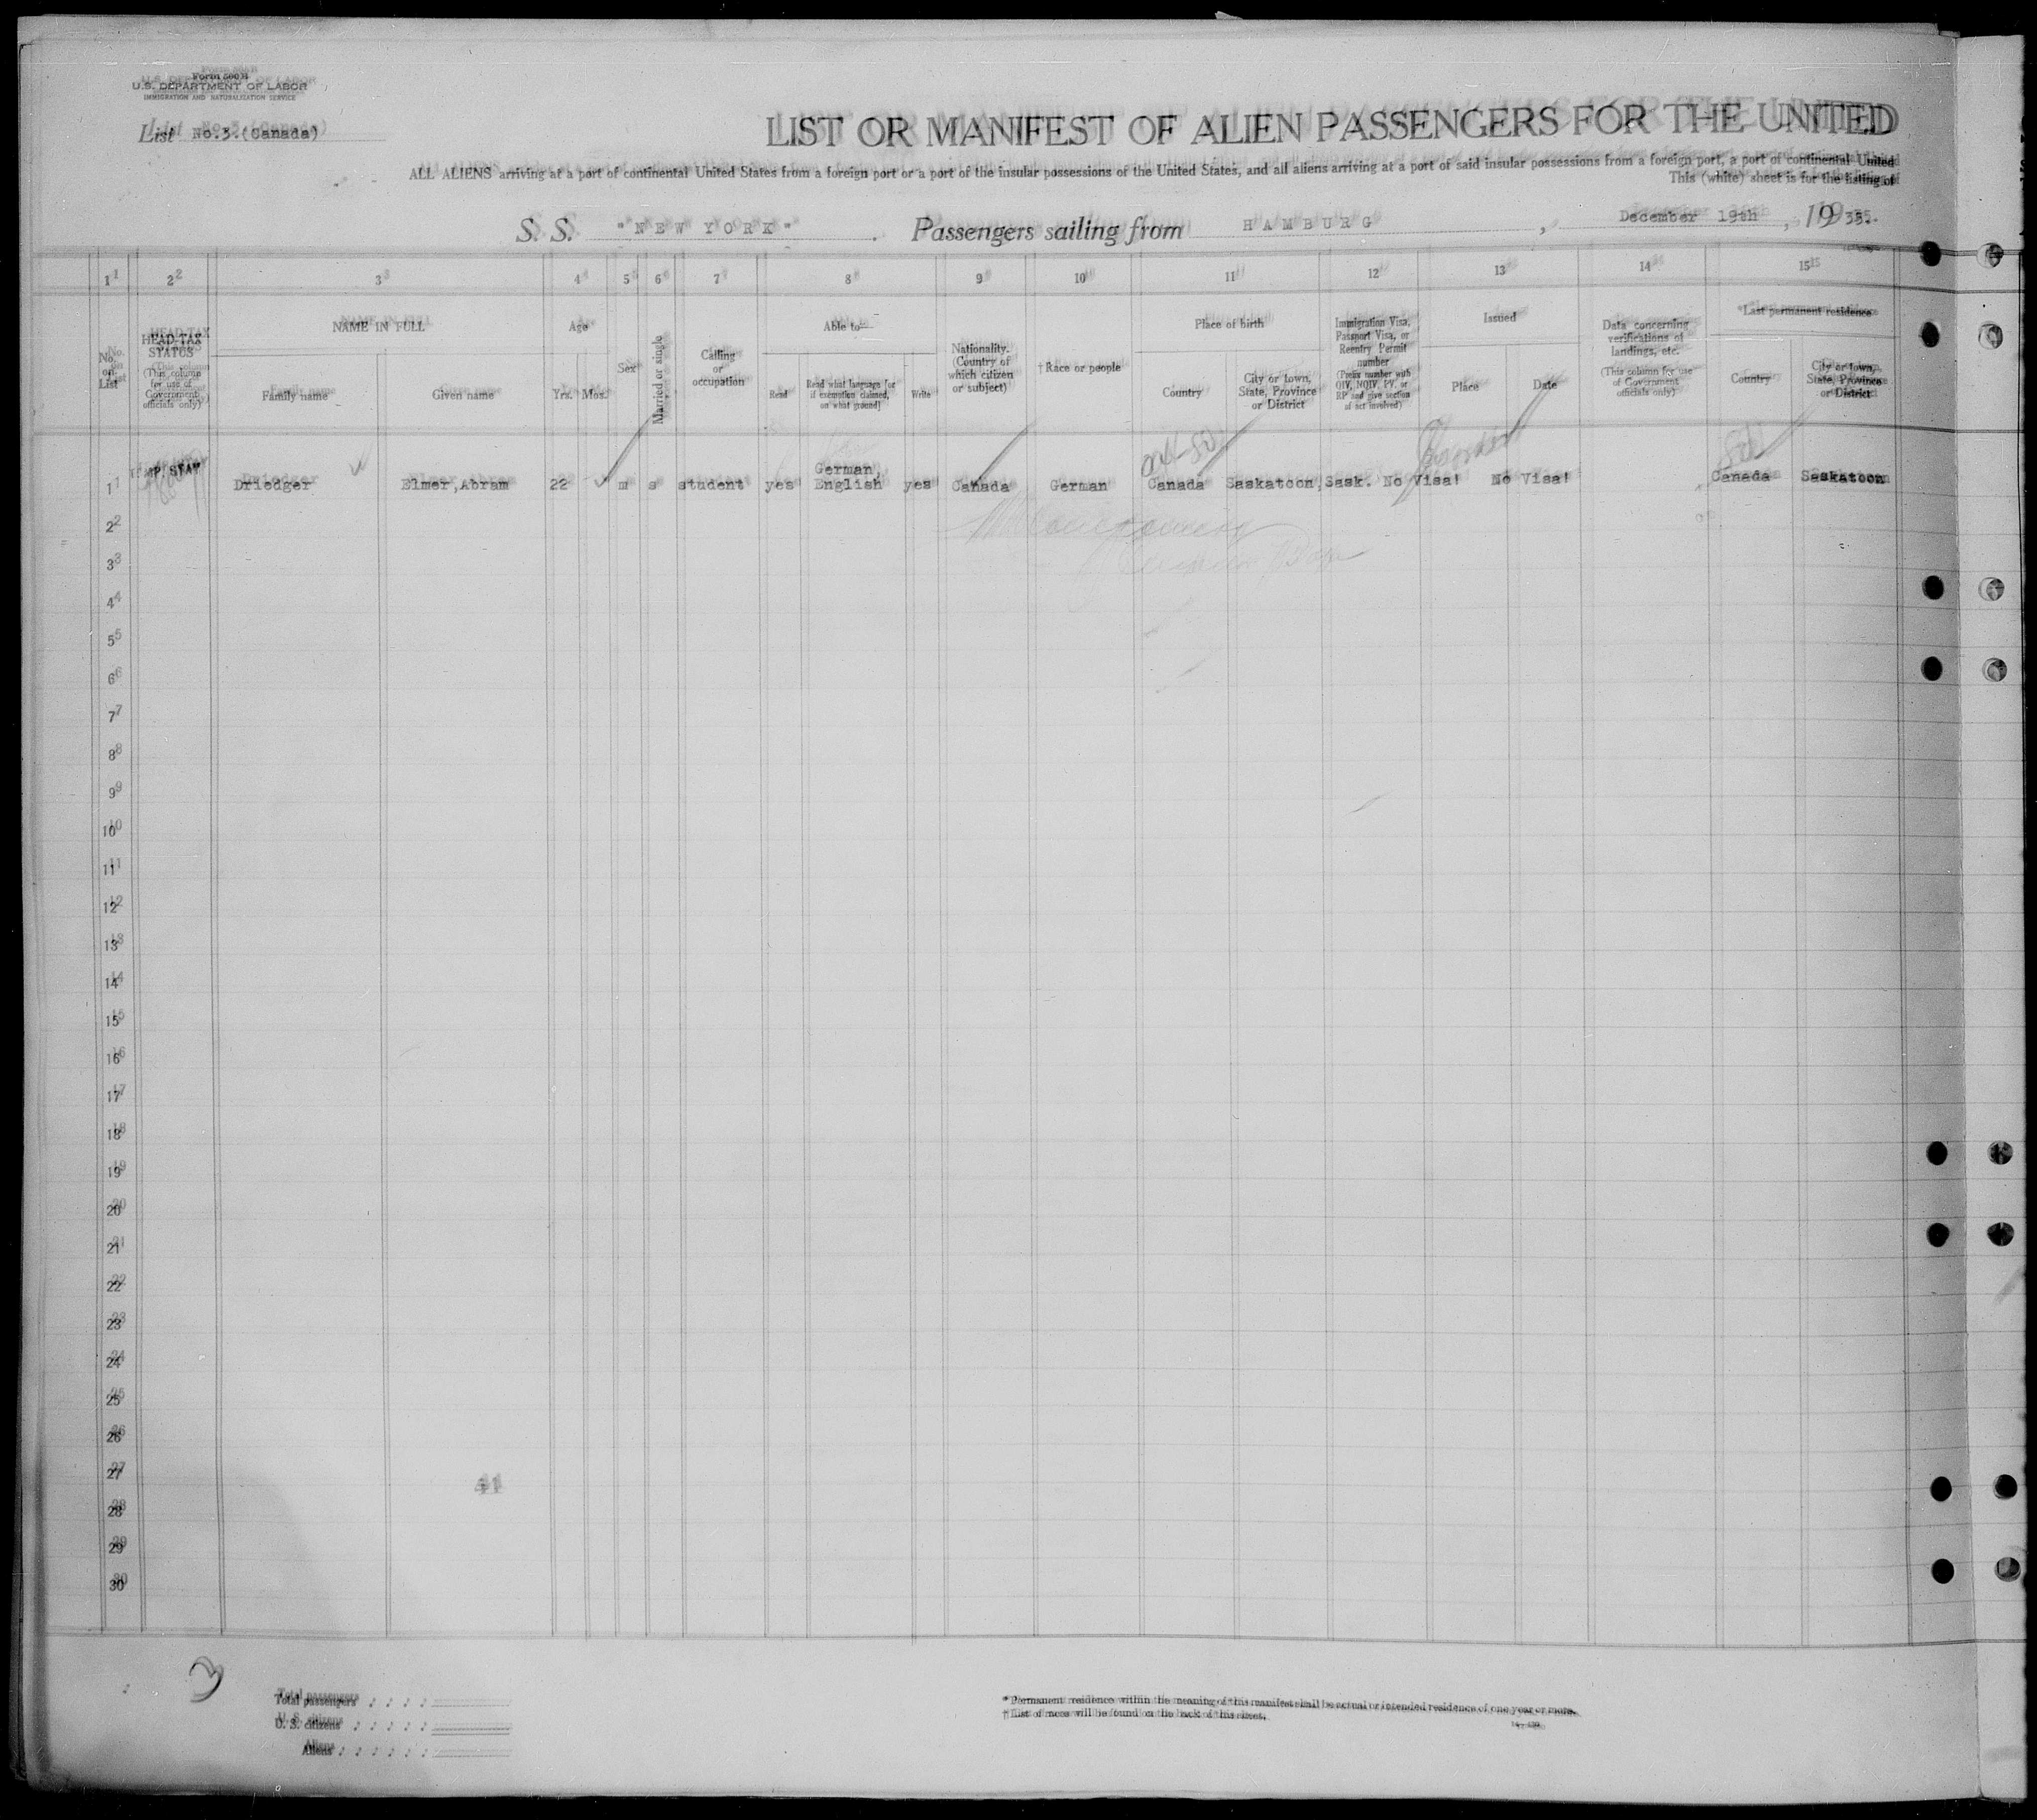 Form 500 B
U.S. DEPARTMENT OF LABOR
IMMIGRATION AND NATURALIZATION SERVICE
List No.3.(Canada)
LIST OR MANIFEST OF ALIEN PASSENGERS FOR THE UNITED
ALL ALIENS arriving at a port of continental United States from a foreign port or a port of the insular possessions of the United States, and all aliens arriving at a port of said insular possessions from a foreign port, a port of continental United
This (white) sheet is for the listing of
S. S. "NEW YORK". Passengers sailing from HAMBURG, December 19th, 1935.
1 2 3 4 5 6 7 8 9 10 11 12 13 14 15
No. on List
HEAD-TAX STATUS
(This column for use of Government officials only)
NAME IN FULL
Family name
Given name
Age
Yrs. Mos.
Sex
Married or single
Calling or occupation
Able to—
Read
Read what language [or if exemption claimed, on what ground]
Write
Nationality. (Country of which citizen or subject)
†Race or people
Place of birth
Country
City or town, State, Province or District
Immigration Visa, Passport Visa, or Reentry Permit number
(Prefix number with QIV, NQIV, PV, or RP and give section of act involved)
Issued
Place
Date
Data concerning verifications of landings, etc.
(This column for use of Government officials only)
*Last permanent residence
Country
City or town, State, Province or District
1 TEMP. STAY Driedger Elmer,Abram 22 m s student yes German, English yes Canada German Canada Saskatoon,Sask. No Visa! No Visa! Canada Saskatoon
2
3
4
5
6
7
8
9
10
11
12
13
14
15
16
17
18
19
20
21
22
23
24
25
26
27
28
29
30
41
3
Total passengers
U. S. citizens
Aliens
*Permanent residence within the meaning of this manifest shall be actual or intended residence of one year or more.
†List of races will be found on the back of this sheet.